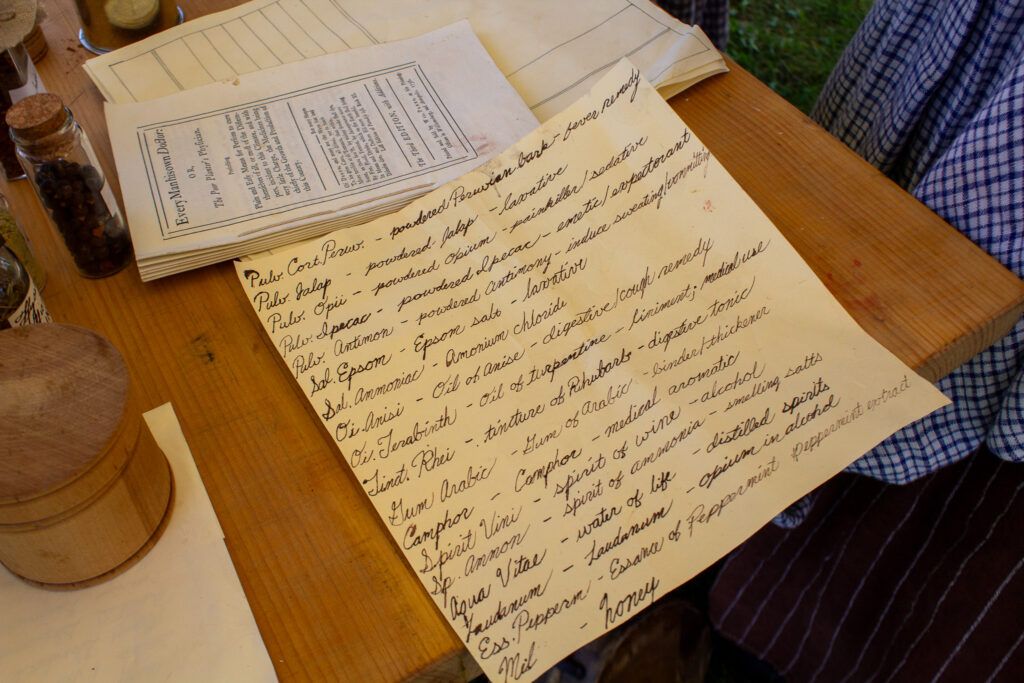 Every Man his own Doctor:
OR,
The Poor Planter's Physician.
Prescribing
Plain and Easy Means for
The Third EDITION, with Additions.
Pulv. Cort. Peruv. - powdered Peruvian bark - fever remedy
Pulv. Jalap - powdered Jalap - laxative
Pulv. Opii - powdered Opium - painkiller/sedative
Pulv. Ipecac - powdered Ipecac - emetic/expectorant
Pulv. Antimon - powdered Antimony - induce sweating/vomitting
Sal. Epsom - Epsom salt - laxative
Sal. Ammoniac - Amonium chloride
Oi Anisi - Oil of Anise - digestive/cough remedy
Oi. Terabinth - Oil of turpentine - liniment; medical use
Tinct. Rhei - tincture of Rhubarb - digestive tonic
Gum Arabic - Gum of Arabic - binder/thickener
Camphor - Camphor - medical aromatic
Spirit Vini - spirit of wine - alcohol
Sp. Ammon - spirit of ammonia - smelling salts
Aqua Vitae - water of life - distilled spirits
Laudanum - Laudanum - opium in alcohol
Ess. Pepperm - Essance of Peppermint Peppermint extract
Mel - honey